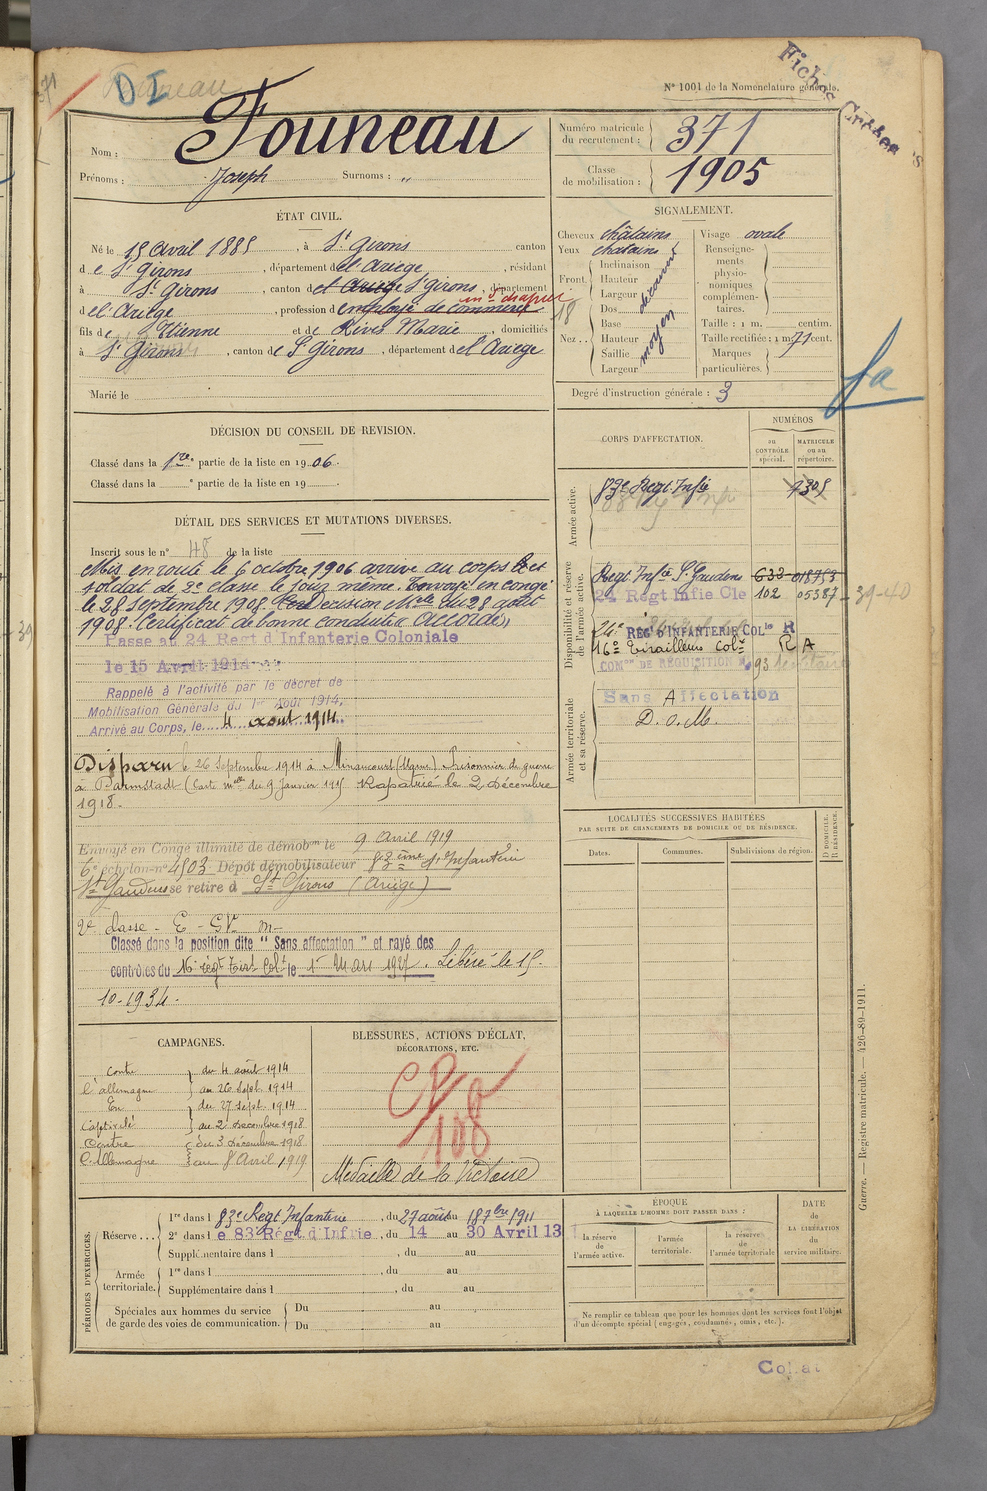 371
DI
Nº 1001 de la Nomenclature générale.
Fiches Croisées
Nom : Founeau
Prénoms : Joseph Surnoms : "
Numéro matricule du recrutement : 371
Classe de mobilisation : 1905
ÉTAT CIVIL.
Né le 15 Avril 1885, à St Girons canton
de St Girons, département de l'Ariège, résidant
à St Girons, canton de St Girons, département
de l'Ariège, profession d'employé de commerce
md drapier
fils de Etienne et de Rives Marie, domiciliés
à St Girons, canton de St Girons, département de l'Ariège
Marié le
SIGNALEMENT.
Cheveux châtains
Yeux chatains
Front. Inclinaison
Hauteur
Largeur
découvert
Nez.. Dos
Base
Hauteur
Saillie
Largeur
moyen
Visage ovale
Renseignements physionomiques complémentaires.
Taille : 1 m. centim.
Taille rectifiée : 1 m 71 cent.
Marques particulières.
Degré d'instruction générale : 3
DÉCISION DU CONSEIL DE REVISION.
Classé dans la 1re partie de la liste en 1906.
Classé dans la e partie de la liste en 19
DÉTAIL DES SERVICES ET MUTATIONS DIVERSES.
Inscrit sous le nº 48 de la liste
Mis en route le 6 octobre 1906 arrivé au corps et
soldat de 2e classe le jour même. Envoyé en congé
le 28 Septembre 1908. Décision Mlle du 28 août
1908. Certificat de bonne conduite "Accordé"
Passé au 24 Regt d'Infanterie Coloniale
le 15 Avril 1914
Rappelé à l'activité par le décret de
Mobilisation Générale du 1er Août 1914,
Arrivé au Corps, le 4 août 1914.
Disparu le 26 Septembre 1914 à Minaucourt (Marne) Prisonnier de guerre
à Darmstadt (Carte mlle du 9 Janvier 1915) Rapatrié le 2 décembre
1918.
Envoyé en Congé illimité de démobon le 9 Avril 1919
6e échelon nº 4503 Dépôt démobilisateur 83ème d'Infanterie
St Gaudens se retire à St Girons (Ariège)
Classé dans la position dite " Sans affectation " et rayé des
contrôles du 16e régt Tirs Colx le 1er Mars 1927. Libéré le 15-
10-1934.
CORPS D'AFFECTATION.
NUMÉROS
au CONTRÔLE spécial.
MATRICULE ou au répertoire.
Armée active.
83e Regt Infie
7305
Disponibilité et réserve de l'armée active.
Regt Infie St Gaudens 633 018753
24 Regt Infie Cle 102 05387 - 39-40
24e REGt D'INFANTERIE COLle R
16e Tirailleurs Colx R A
COMon DE RÉQUISITION 93
Armée territoriale et sa réserve.
Sans Affectation
D. o. M.
LOCALITÉS SUCCESSIVES HABITÉES
PAR SUITE DE CHANGEMENTS DE DOMICILE OU DE RÉSIDENCE.
Dates. Communes. Subdivisions de région. D DOMICILE. R RÉSIDENCE.
CAMPAGNES.
Contre l'allemagne du 4 août 1914
au 26 Sept. 1914
En captivité du 27 Sept. 1914
au 2 Décembre 1918
Contre l'Allemagne du 3 Décembre 1918
au 8 Avril 1919
BLESSURES, ACTIONS D'ÉCLAT,
DÉCORATIONS, ETC.
108
Médaille de la Victoire
PÉRIODES D'EXERCICES.
Réserve... 1re dans l 83e Regt Infanterie, du 27 août au 18 7bre 1911
2e dans l e 83 Régt d'Inftrie, du 14 au 30 Avril 13
Supplémentaire dans l, du au
Armée territoriale. 1re dans l, du au
Supplémentaire dans l, du au
Spéciales aux hommes du service de garde des voies de communication. Du au
Du au
ÉPOQUE
À LAQUELLE L'HOMME DOIT PASSER DANS :
la réserve de l'armée active.
l'armée territoriale.
la réserve de l'armée territoriale
DATE de LA LIBÉRATION du service militaire.
Ne remplir ce tableau que pour les hommes dont les services font l'objet
d'un décompte spécial (engagés, condamnés, omis, etc.).
Guerre. — Registre matricule. — 426-89-1911.